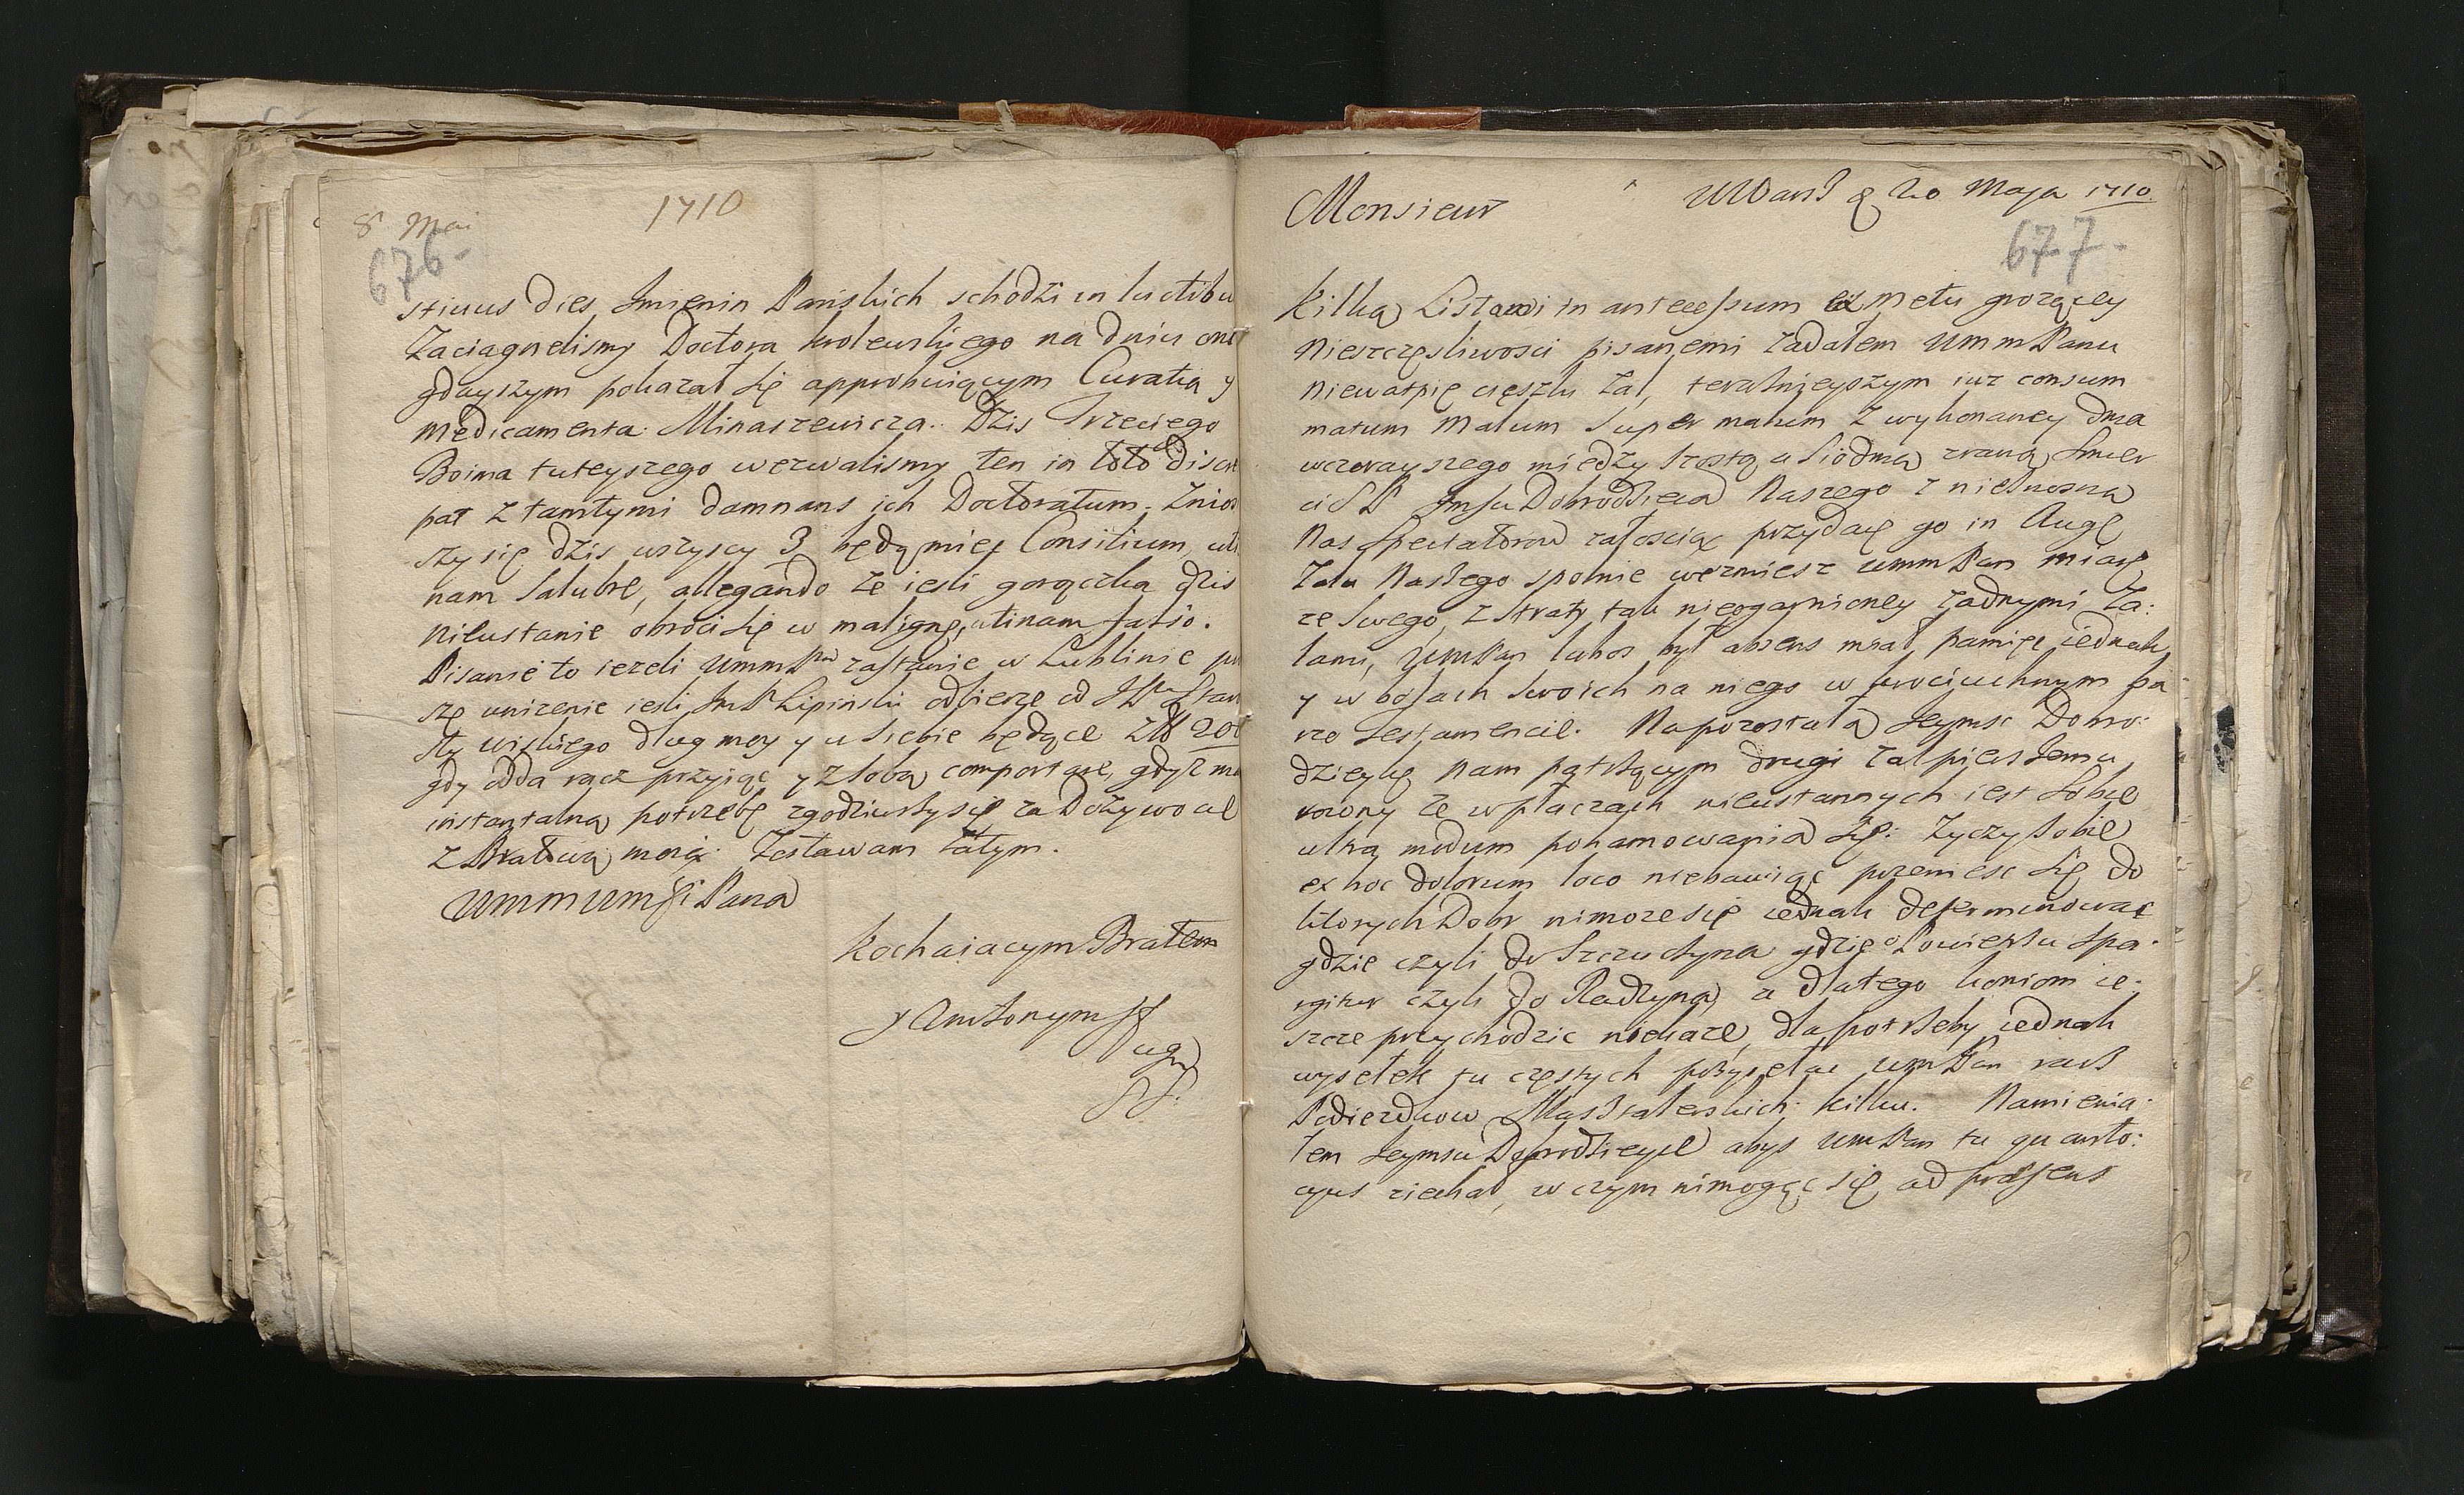 8 Mai
1710
676
stiuus dies Imienin Pańskich schodzi in luctibu
Zaciagnelismy Doctora krolewskiego na dniu
gdayszym pokazał się approbuiącym Curatią y
medicamenta Minaszewicza. Dzis Trzeciego
Boima tuteyszego wezwalismy ten in toto
pat z tamtymi damnans ich Doctoratum. Znios
szy się dzis wszyscy 3 będą mieć Consilium, uti
nam Salubre, allegando że iesli gorączka dzis
nieustanie obroci się w maligne, utinam falso.
Pisanie to iezeli UmmPna zastanie w Lublinie
szę unizenie iesli ImP Lipinski odbierze od
sty dług moy y u siebie będące
gdy odda racz przyiąć y z sobą comportare, gdyz
instantalną potrzebę się
z Bratową moią. Zostawam zatym.
UmmmPana
kochaiacym Bratem
y
sługą
Monsieur
d 20 Maja 1710
677
Kilką Listami in antecessum ex metu grozącey
Nieszczęsliwosci pisanemi zadałem UmmPanu
Niewątpię cięszki żal, teraznieyszym iuz consum
matum malum super malum z wykonaney dnia
wczorayszego między szostą a siodmą zraną Smier
ci SP Dobrodzieia Naszego z nieznosną
Nas Spectatorow załoscią przydaię go in
Zalu Naszego spolnie wezmiesz UmmPan miarę
ze swego, z straty tak nieogarnioney żadnymi ża:
lami, lubos był absens miał pamięć iednak
y w bolach swoich na niego w krociuchnym
Testamencie. Napozostałą Jeymść Dobro:
dzieykę nam patrzącym drugi żal
ze w płaczach nieustannych iest Sobie
ultra modum pohamowania się. Zyczy sobie
ex hoc dolorum loco niebawiąc przeniesc się do
ktorych Dobr nimoze się iednak determinować
gdzie czyli do Szczuczyna gdzie Powietrze spa
rgitur czyli do Radzyna, a dlatego koniom ie:
szcze przychodzic niekaze, dla potrzeby iednak
wysełek tu częstych przysełac UmPan racz
Podiezdkow kilku. Namienia
łem Jeymsci Dobrodzieyce abys UmPan tu quanto:
cyus ziechał, w czym nimogąc się ad præsens